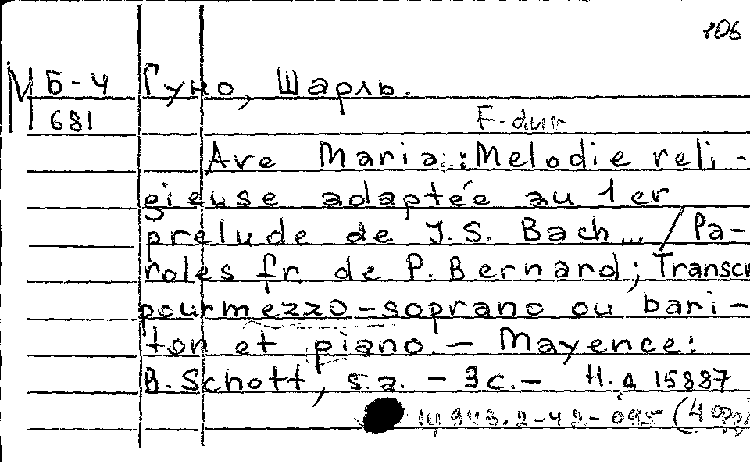 106
М Б-4 Гуно, Шарль.
681 F-dur
Ave Maria: Melodie reli-
gieuse adaptée au 1er
prélude de J.S. Bach... / Pa-
roles fr. de P. Bernard; Transcr
pour mezzo-soprano ou bari-
ton et piano. - Mayence:
B. Schott, s.a. - 3с. - Н.д 15887